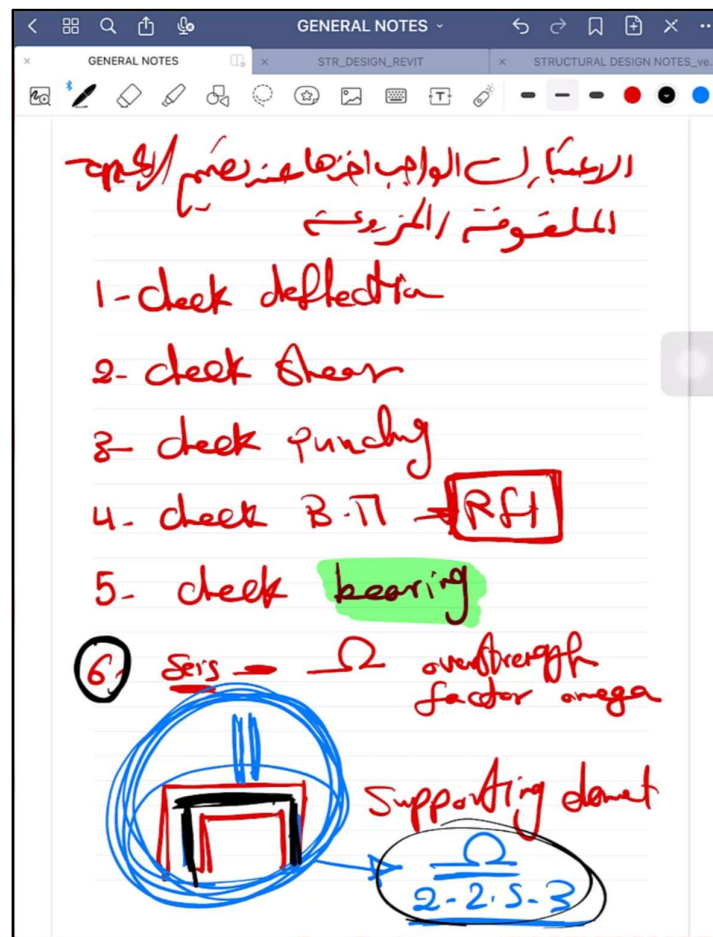 GENERAL NOTES
GENERAL NOTES
STR_DESIGN_REVIT
STRUCTURAL DESIGN NOTES_ve..
الاعتبارات الواجب اخذها عند تصميم الاعمدة
الملقوفة / المزروعة
1- check deflection
2- check Shear
3- check punching
4- check B.M → RFT
5- check bearing
6- Seis - Ω overstrength
factor omega
Supporting element
Ω
2-2.5-3